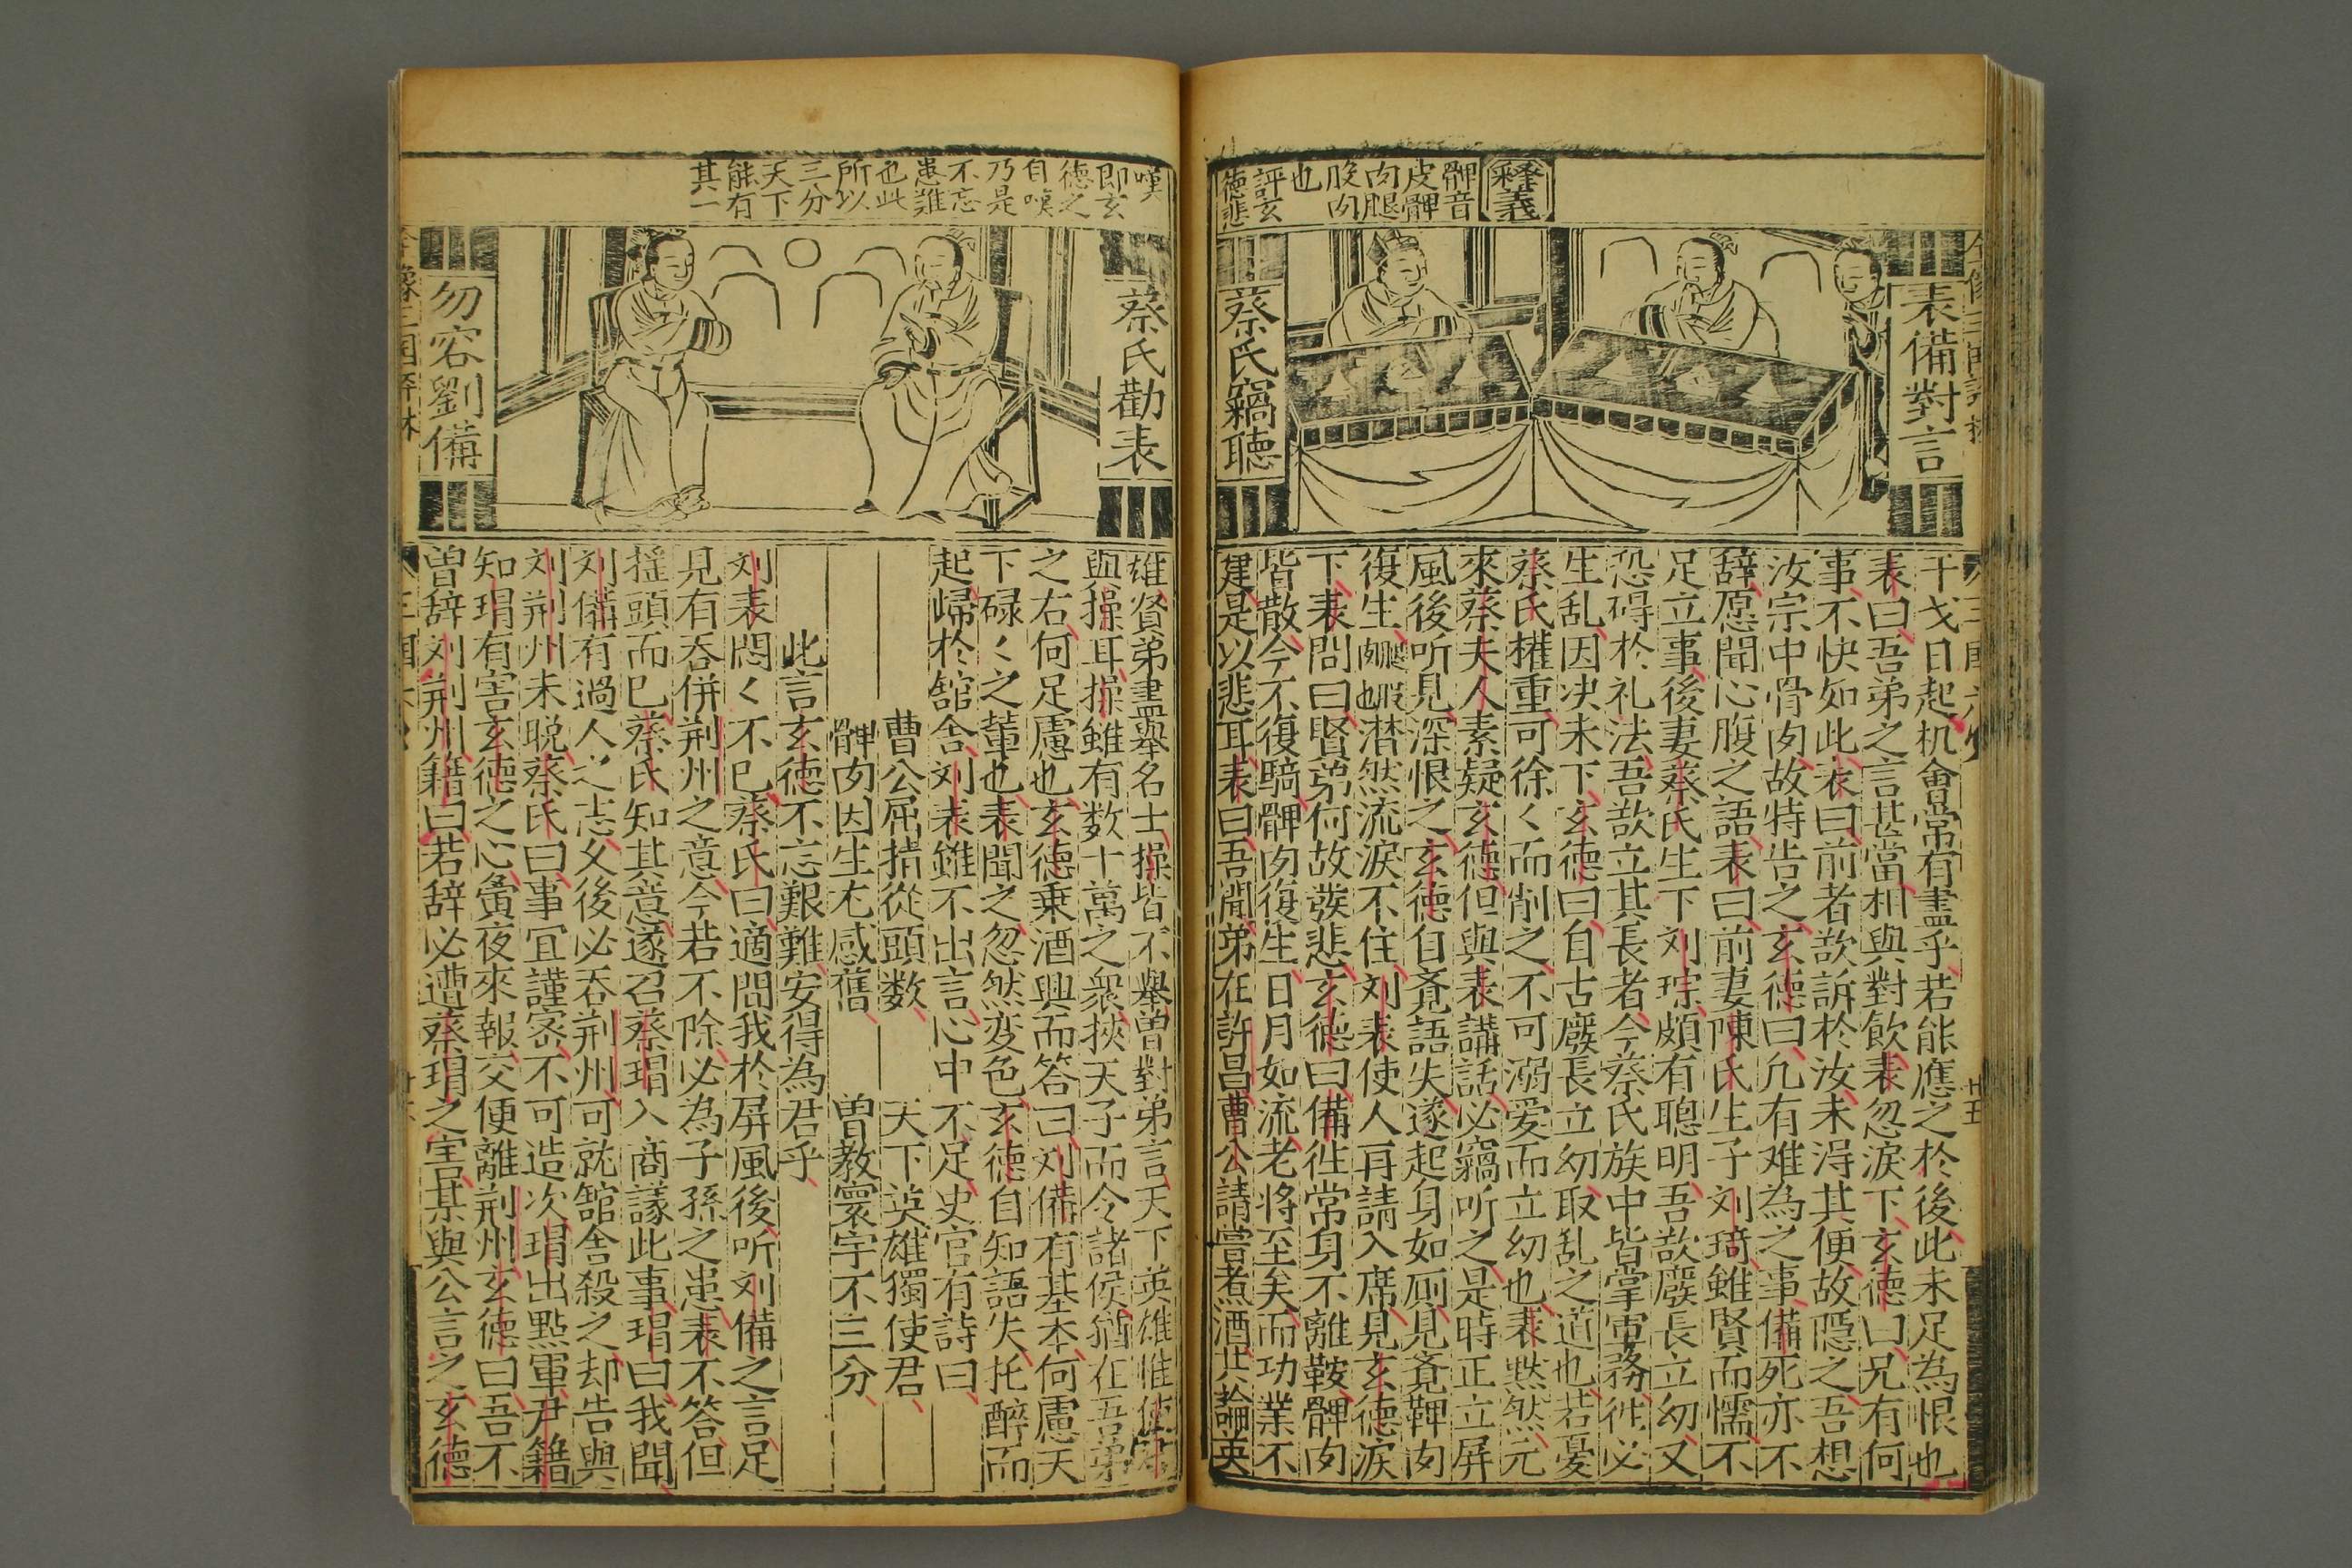 釋義
髀音
皮髀
肉腿
股肉
也
評玄
德悲
表備對言
蔡氏竊聽
干戈日起机會常有盡乎若能應之於後此未足為恨也
表曰吾弟之言甚當相與對飲表忽淚下玄德曰兄有何
事不快如此表曰前者欲訴於汝未得其便故隱之吾想
汝宗中骨肉故特告之玄德曰凢有难為之事備死亦不
辞愿聞心腹之語表曰前妻陳氏生子刘琦雖賢而懦不
足立事後妻蔡氏生下刘琮頗有聰明吾欲廢長立幼又
恐碍於礼法吾欲立其長者今蔡氏族中皆掌軍務徃必
生乱因决未下玄德曰自古廢長立幼取乱之道也若憂
蔡氏權重可徐〱而削之不可溺爱而立幼也表黙然元
來蔡夫人素疑玄德但與表講話必竊听之是時正立屏
風後听見深恨之玄德自覔語失遂起身如厠見覔髀肉
復生潸然流淚不住刘表使人再請入席見玄德淚
下表問曰賢弟何故發悲玄德曰備徃常身不離鞍髀肉
皆散今不復騎髀肉復生日月如流老將至矣而功業不
建是以悲耳表曰吾聞弟在許昌曹公請嘗煮酒共論英
嘆
即玄
德之
自嘆
乃是
不忘
患難
也此
所以
三分
天下
能有
其一
蔡氏勸表
勿容劉備
雄賢弟盡舉名士操皆不舉曽對弟言天下英雄惟使君
與操耳操雖有数十萬之衆挾天子而令諸侯猶在吾弟
之右何足慮也玄德乗酒興而答曰刘備有基本何慮天
下碌〱之輩也表聞之忽然变色玄德自知語失托醉而
起歸於舘舍刘表雖不出言心中不足史官有詩曰
曹公屈指從頭数 天下英雄獨使君
髀肉因生尤感舊 曽教寰宇不三分
此言玄德不忘艱難安得為君乎
刘表悶〱不已蔡氏曰適間我於屏風後听刘備之言足
見有吞併荆州之意今若不除必為子孫之患表不答但
揺頭而已蔡氏知其意遂召蔡瑁入商議此事瑁曰我聞
刘備有過人之志久後必吞荆州可就舘舍殺之却告與
刘荆州未晩蔡氏曰事宜謹宻不可造次瑁出點軍尹籍
知瑁有害玄德之心夤夜來報交便離荆州玄德曰吾不
曽辞刘荆州籍曰若辞必遭蔡瑁之害某與公言之玄德